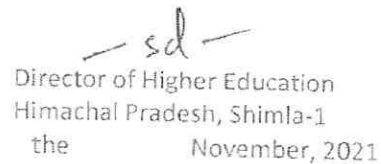 -sd-
Director of Higher Education
Himachal Pradesh, Shimla-1
the November, 2021